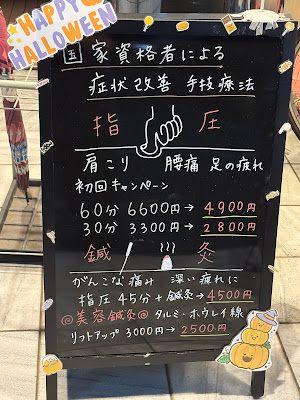 HAPPY
HALLOWEEN
国家資格者による
症状改善 手技療法
指圧
肩こり 腰痛 足の疲れ
初回キャンペーン
60分 6600円→4900円
30分 3300円→2800円
鍼灸
がんこな痛み 深い疲れに
指圧45分+鍼灸→4500円
◎美容鍼灸◎ タルミ・ホウレイ線
リフトアップ 3000円→2500円